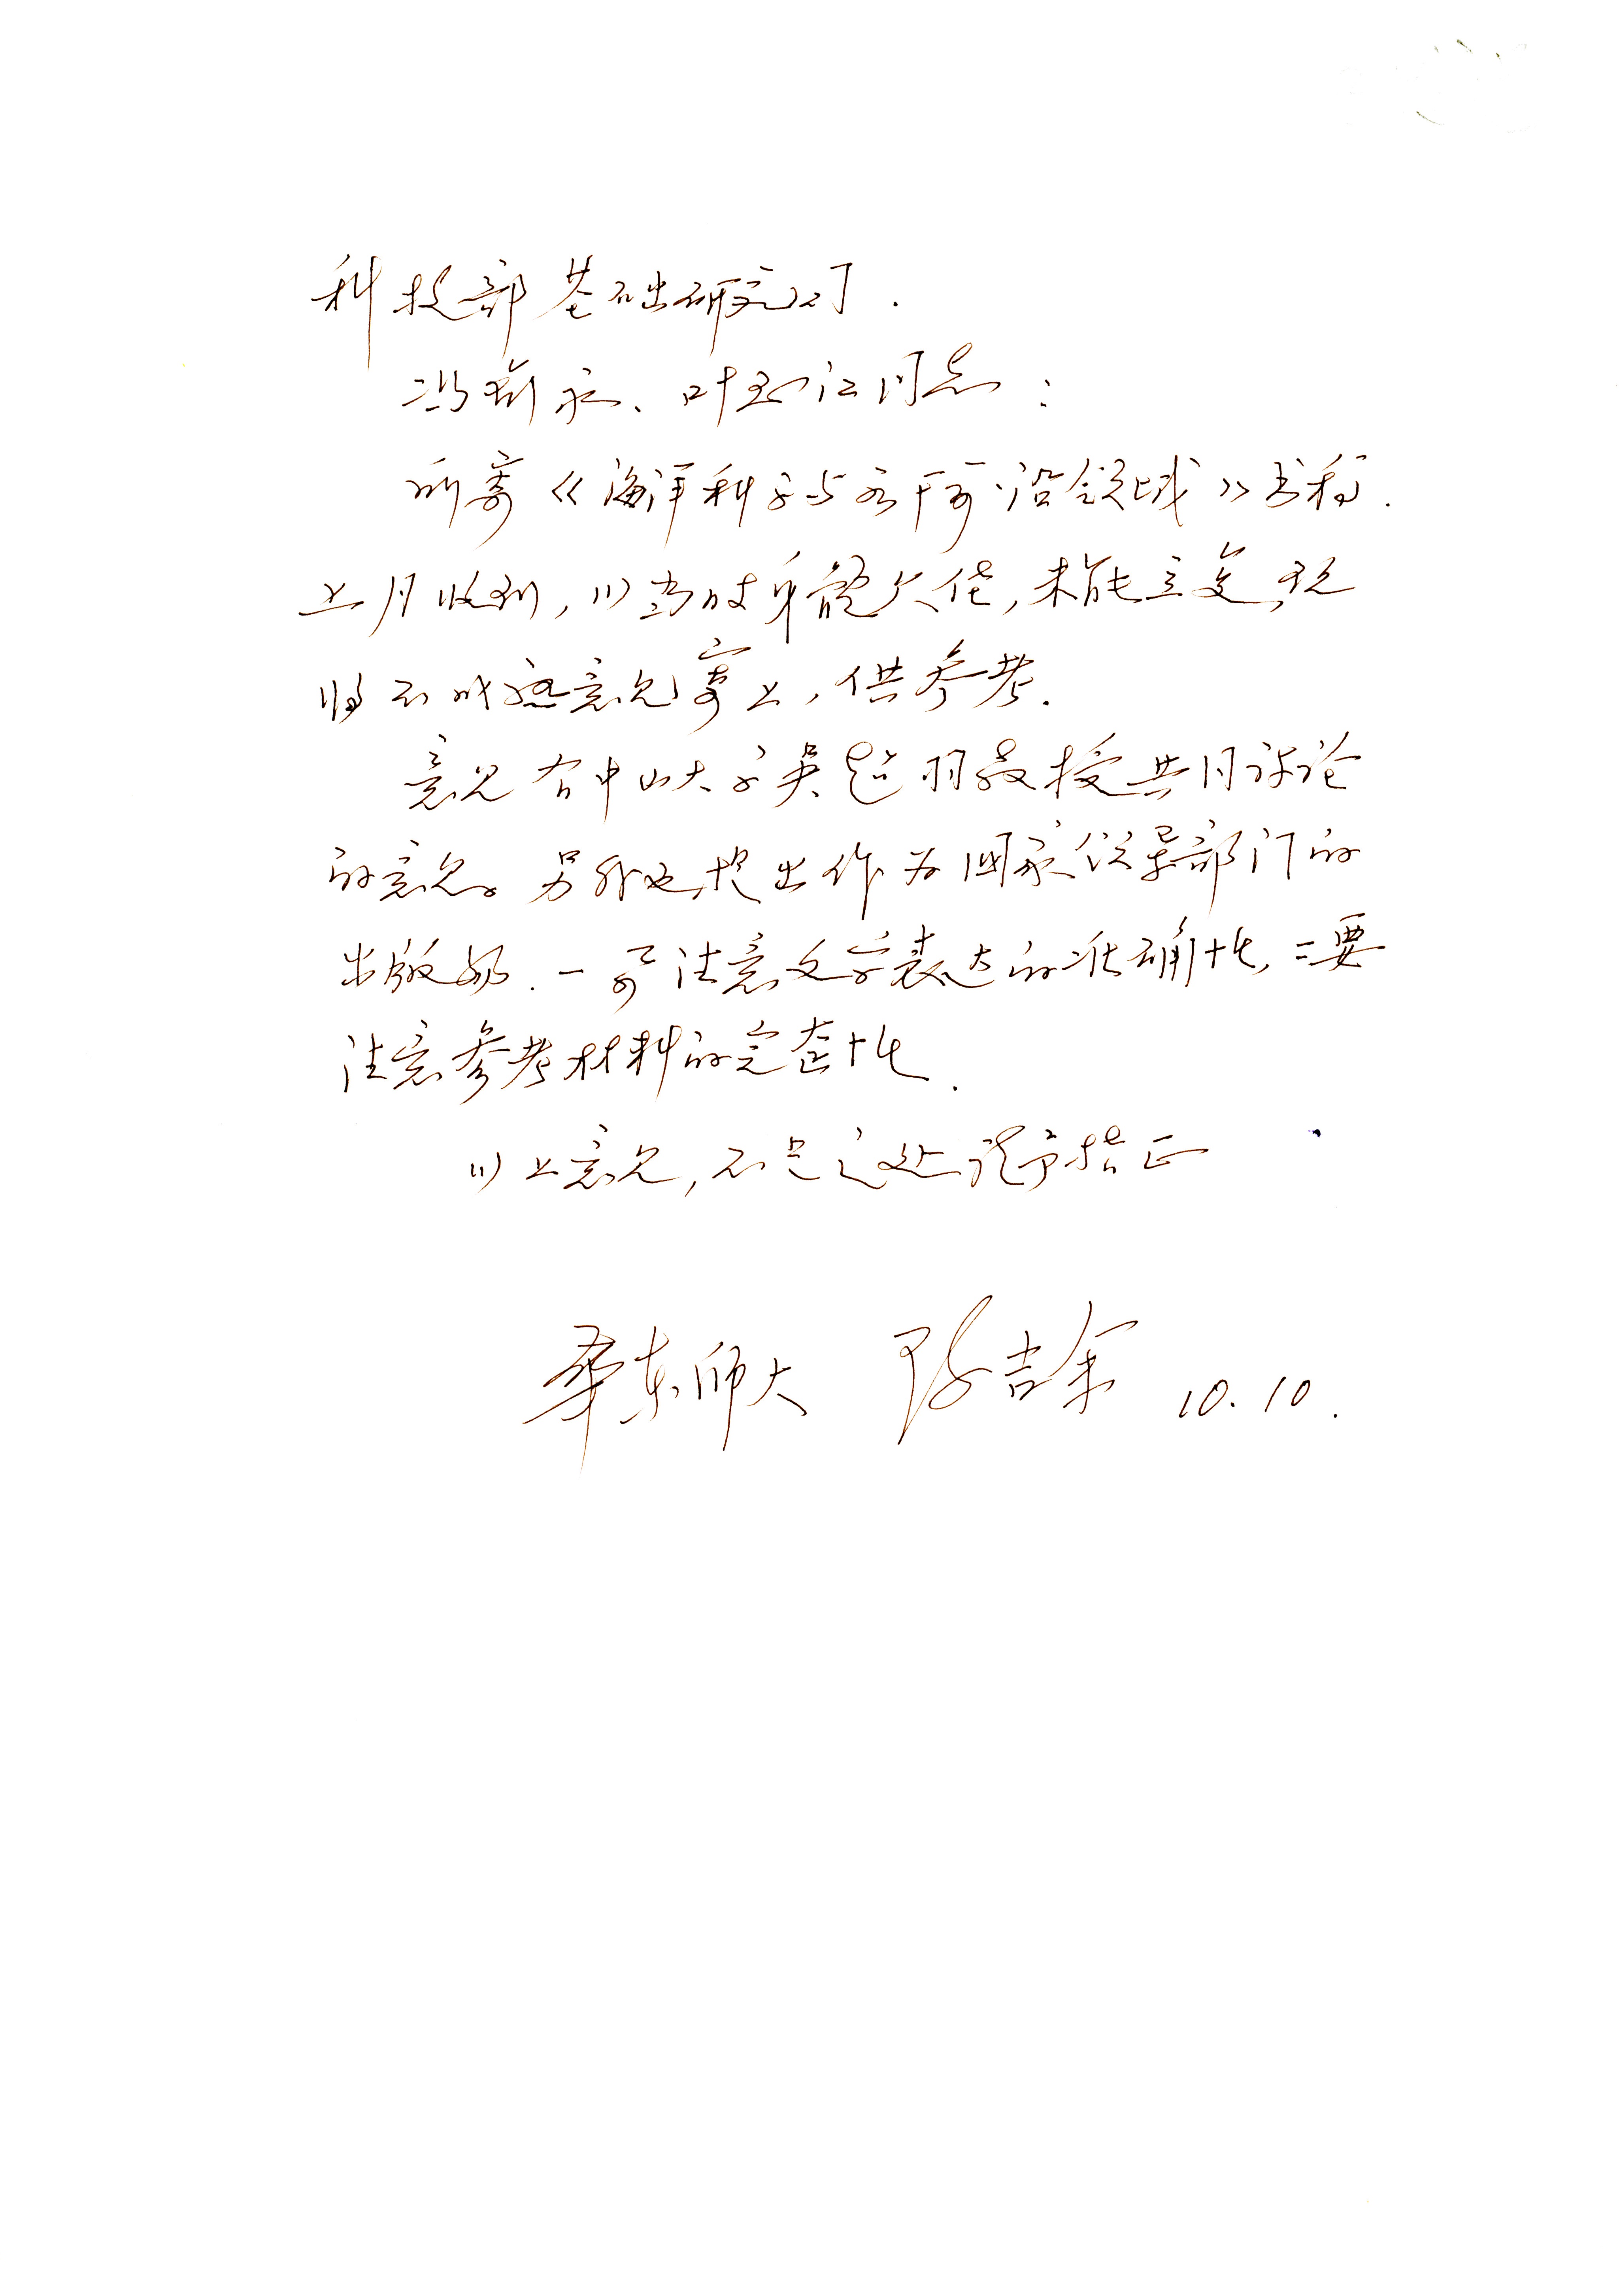 科技部基础研究司.
冯 永、叶玉江同志：
所寄《海洋科学 前沿领域》书稿.
上月收到, 以当时身體欠佳, 未能立复, 现
将不成熟意见寄上, 供参考.
意见 有中山大学吴超羽教授共同讨论
的意见。另外也提出作为国家领导部门的
出版 . 一要注意文字表达的准确性, 二要
注意参考材料的完整性.
以上意见, 不足之处请予指正
华东师大 陈吉余 10.10.